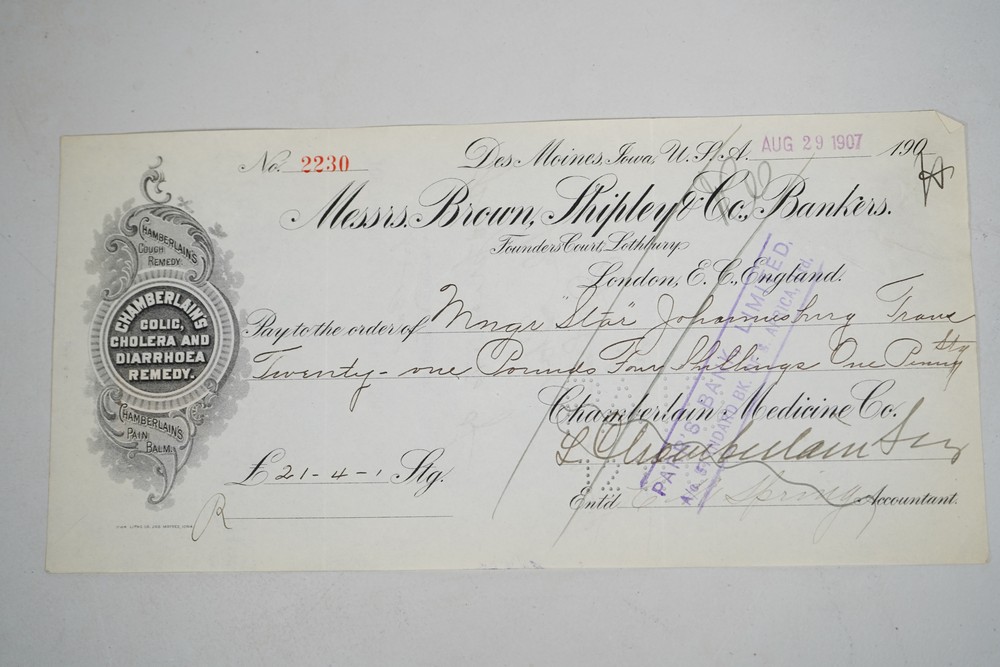 No. 2230
Des Moines, Iowa, U.S.A. AUG 29 1907 190
Messrs. Brown, Shipley & Co., Bankers.
Founders Court, Lothbury
London, E.C., England.
Pay to the order of Mngr "Star" Johannesburg Trans
Twenty-one Pounds Four Shillings One Penny Stg
Chamberlain Medicine Co.
L. Chamberlain
£ 21-4-1 Stg.
Ent'd Accountant.
R
CHAMBERLAIN'S
COUGH
REMEDY
CHAMBERLAIN'S
COLIC,
CHOLERA AND
DIARRHOEA
REMEDY.
CHAMBERLAIN'S
PAIN
BALM.
BANK LIMITED.
A/c STANDARD BK. S. AFRICA, Ltd.